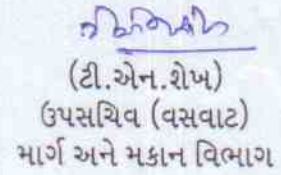 (ટી.એન.શેખ)
ઉપસચિવ (વસવાટ)
માર્ગ અને મકાન વિભાગ